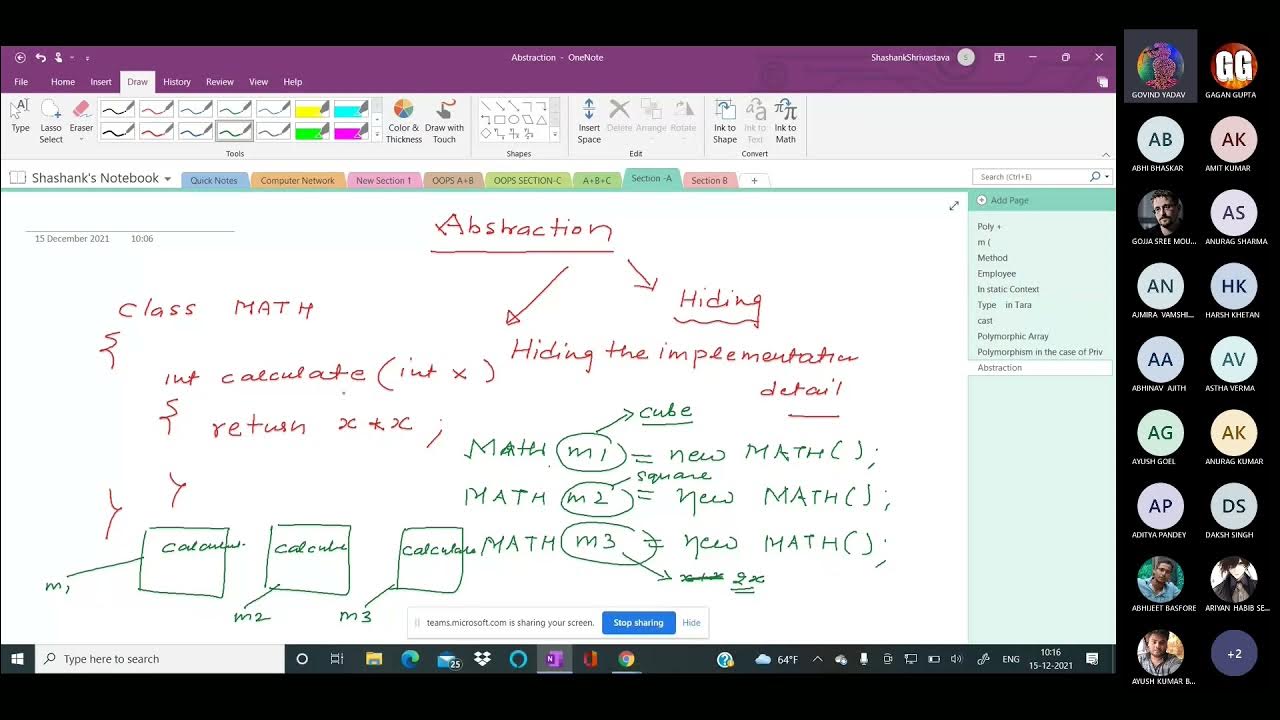 Abstraction - OneNote
ShashankShrivastava
S
File Home Insert Draw History Review View Help
Type
Lasso Select
Eraser
Color & Thickness
Draw with Touch
Insert Space
Delete
Arrange
Rotate
Ink to Shape
Ink to Text
Ink to Math
Tools
Shapes
Edit
Convert
Shashank's Notebook
Quick Notes
Computer Network
New Section 1
OOPS A+B
OOPS SECTION-C
A+B+C
Section -A
Section B
+
Search (Ctrl+E)
15 December 2021 10:06
Abstraction
Hiding
Hiding the implementation
detail
class MATH
{
int calculate (int x)
{ return x * x ;
}
}
cube
Math m1 = new MATH();
square
MATH m2 = new MATH();
MATH m3 = new MATH();
2x
calcube
calculate
m1
m2
m3
Add Page
Poly +
m (
Method
Employee
In static Context
Type in Tara
cast
Polymorphic Array
Polymorphism in the case of Priv
Abstraction
teams.microsoft.com is sharing your screen.
Stop sharing
Hide
Type here to search
25
64°F
ENG
10:16
15-12-2021
GOVIND YADAV
GG
GAGAN GUPTA
AB
ABHI BHASKAR
AK
AMIT KUMAR
GOJJA SREE MOU...
AS
ANURAG SHARMA
AN
AJMIRA VAMSHI...
HK
HARSH KHETAN
AA
ABHINAV AJITH
AV
ASTHA VERMA
AG
AYUSH GOEL
AK
ANURAG KUMAR
AP
ADITYA PANDEY
DS
DAKSH SINGH
ABHIJEET BASFORE
ARIYAN HABIB SE...
AYUSH KUMAR B...
+2